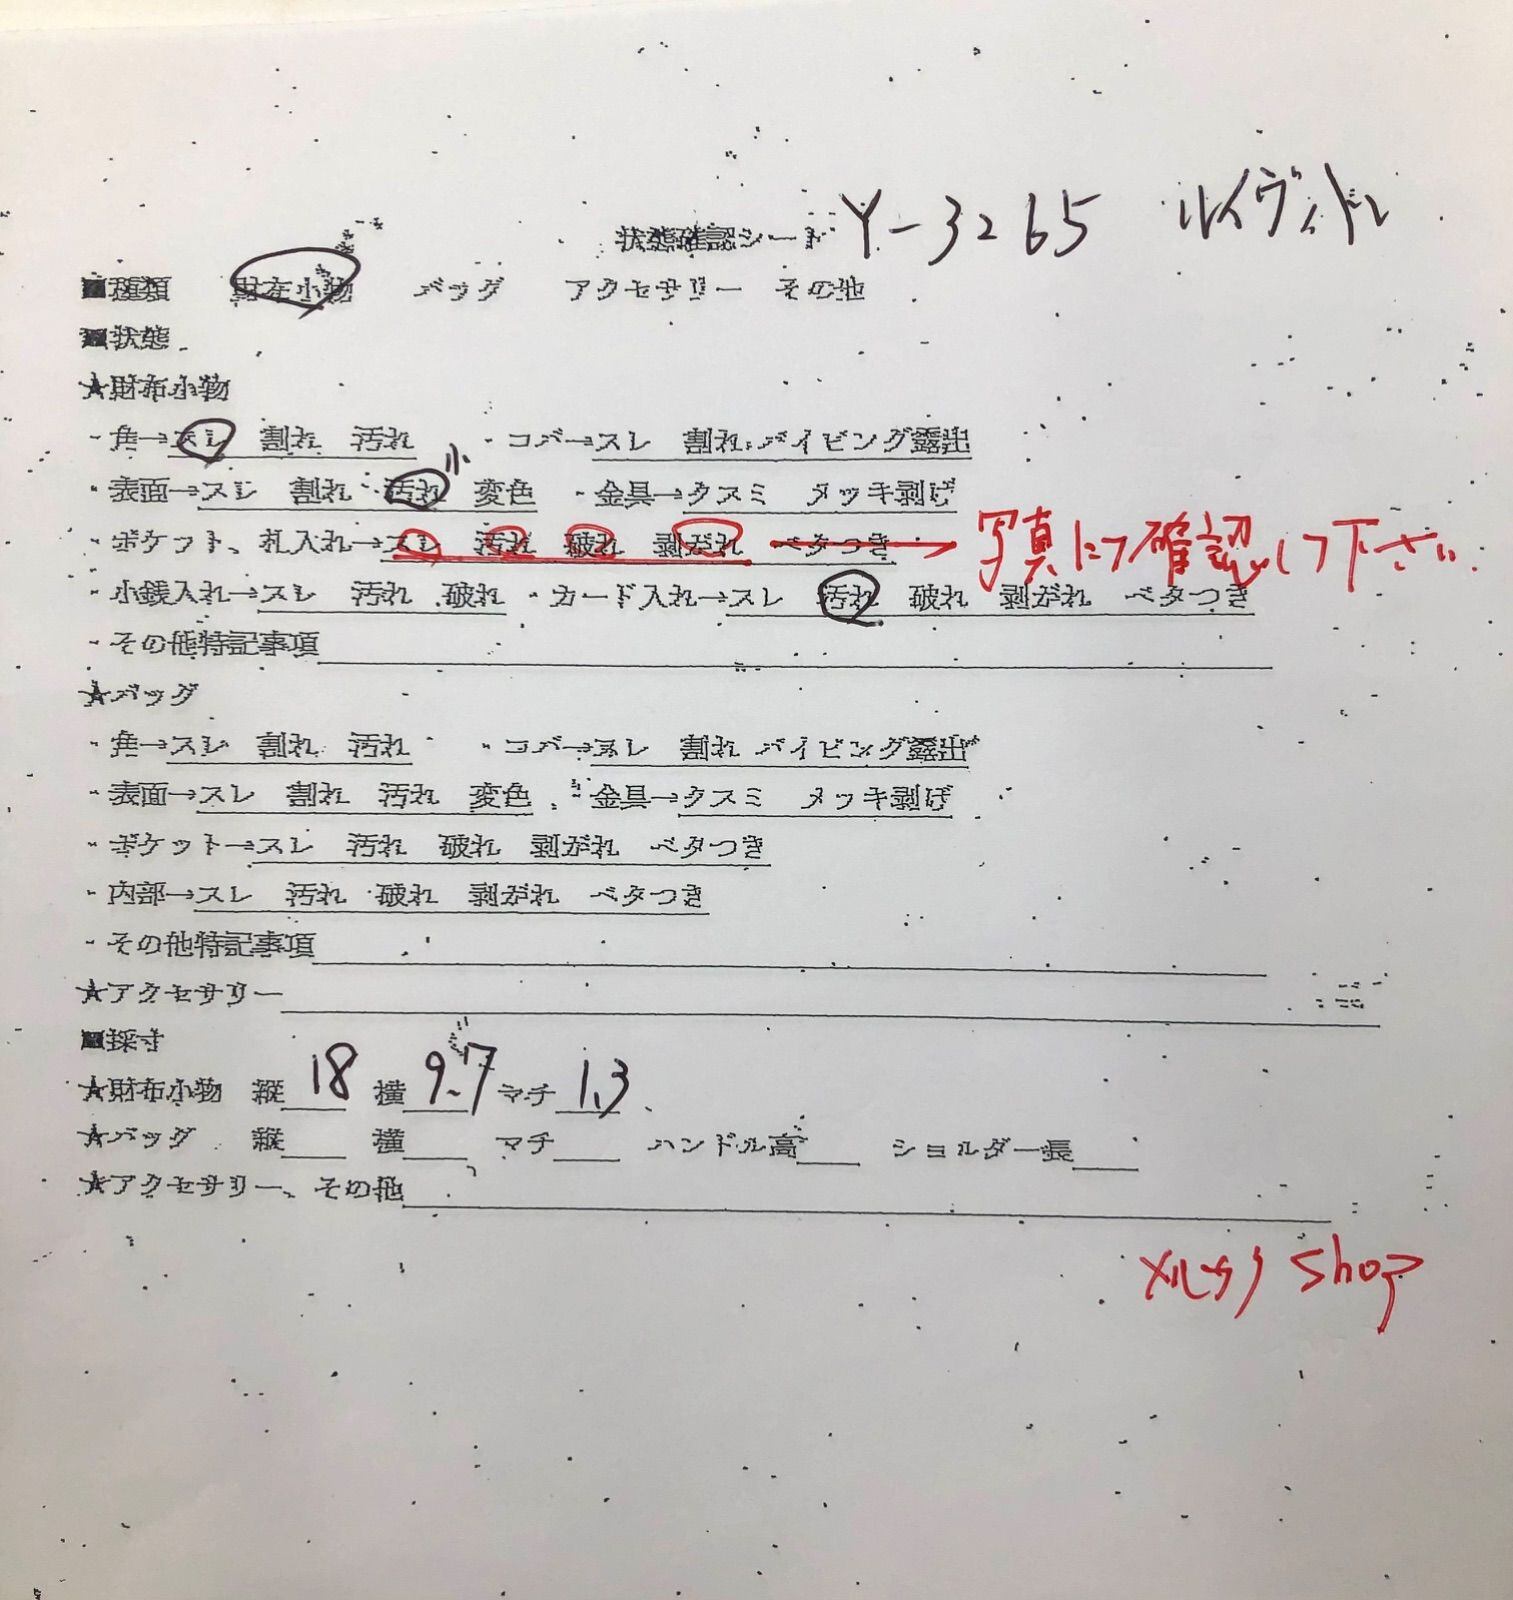 状態確認シート Y-3265 ルイヴィトン
■種類 財布小物 バッグ アクセサリー その他
■状態
★財布小物
・角→スレ 割れ 汚れ ・コバ→スレ 割れ パイピング露出
・表面→スレ 割れ 汚れ 小 変色 ・金具→クスミ メッキ剥げ
・ポケット、札入れ→スレ 汚れ 破れ 剥がれ ベタつき 写真にて確認して下さい
・小銭入れ→スレ 汚れ 破れ ・カード入れ→スレ 汚れ 破れ 剥がれ ベタつき
・その他特記事項
★バッグ
・角→スレ 割れ 汚れ ・コバ→スレ 割れ パイピング露出
・表面→スレ 割れ 汚れ 変色 ・金具→クスミ メッキ剥げ
・ポケット→スレ 汚れ 破れ 剥がれ ベタつき
・内部→スレ 汚れ 破れ 剥がれ ベタつき
・その他特記事項
★アクセサリー
■採寸
★財布小物 縦 18 横 9.7 マチ 1.3
★バッグ 縦 横 マチ ハンドル高 ショルダー長
★アクセサリー、その他
メルカリ shop